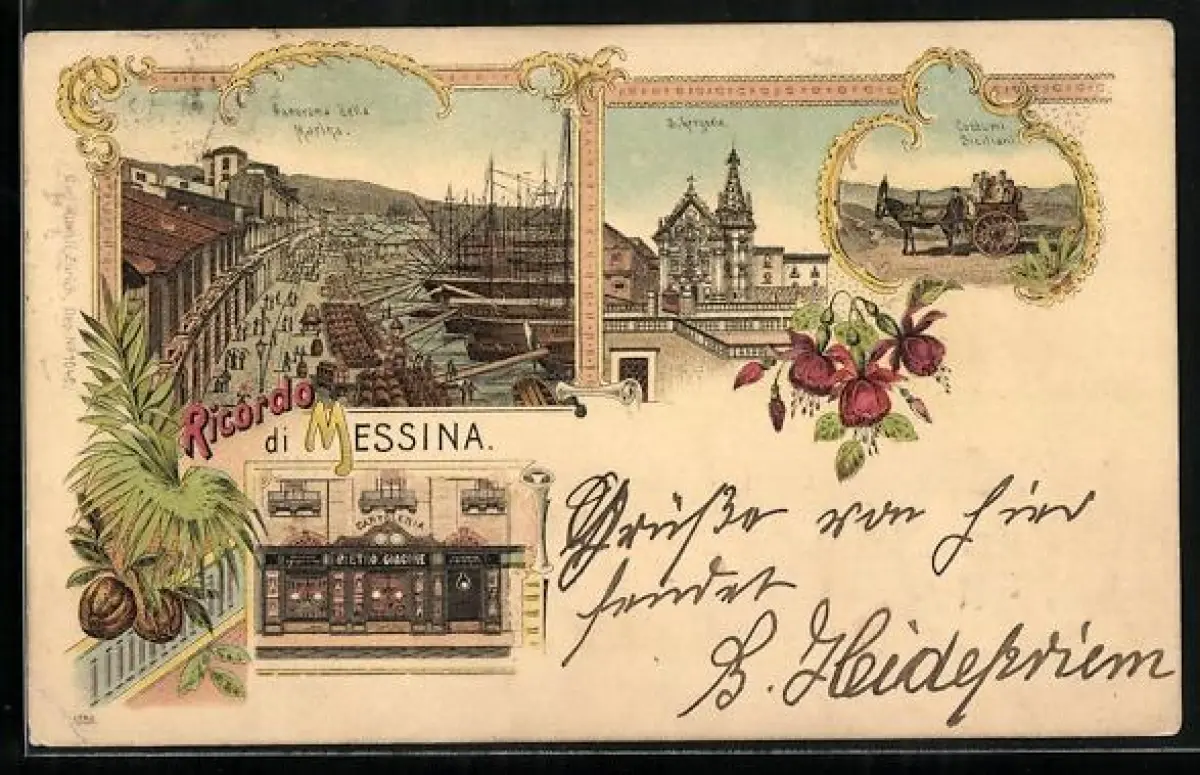 Panorama della
Marina.
S. Gregorio.
Costumi
Siciliani
Ricordo
di MESSINA.
CARTOLERIA
DI PIETRO GIACONE
Grüße von hier
sendet